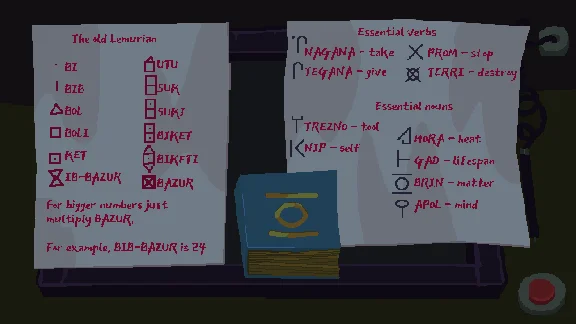 The old Lemurian
BI
BIB
BOL
BOLI
KET
IB-BAZUR
UTU
SUK
SUKI
BIKET
BIKETI
BAZUR
For bigger numbers just
multiply BAZUR.
For example, BIB-BAZUR is 24
Essential verbs
NAGANA - take
TEGANA - give
PROM - stop
TERRI - destroy
Essential nouns
TREZNO - tool
NIP - self
MORA - heat
GAD - lifespan
BRIN - matter
APOL - mind